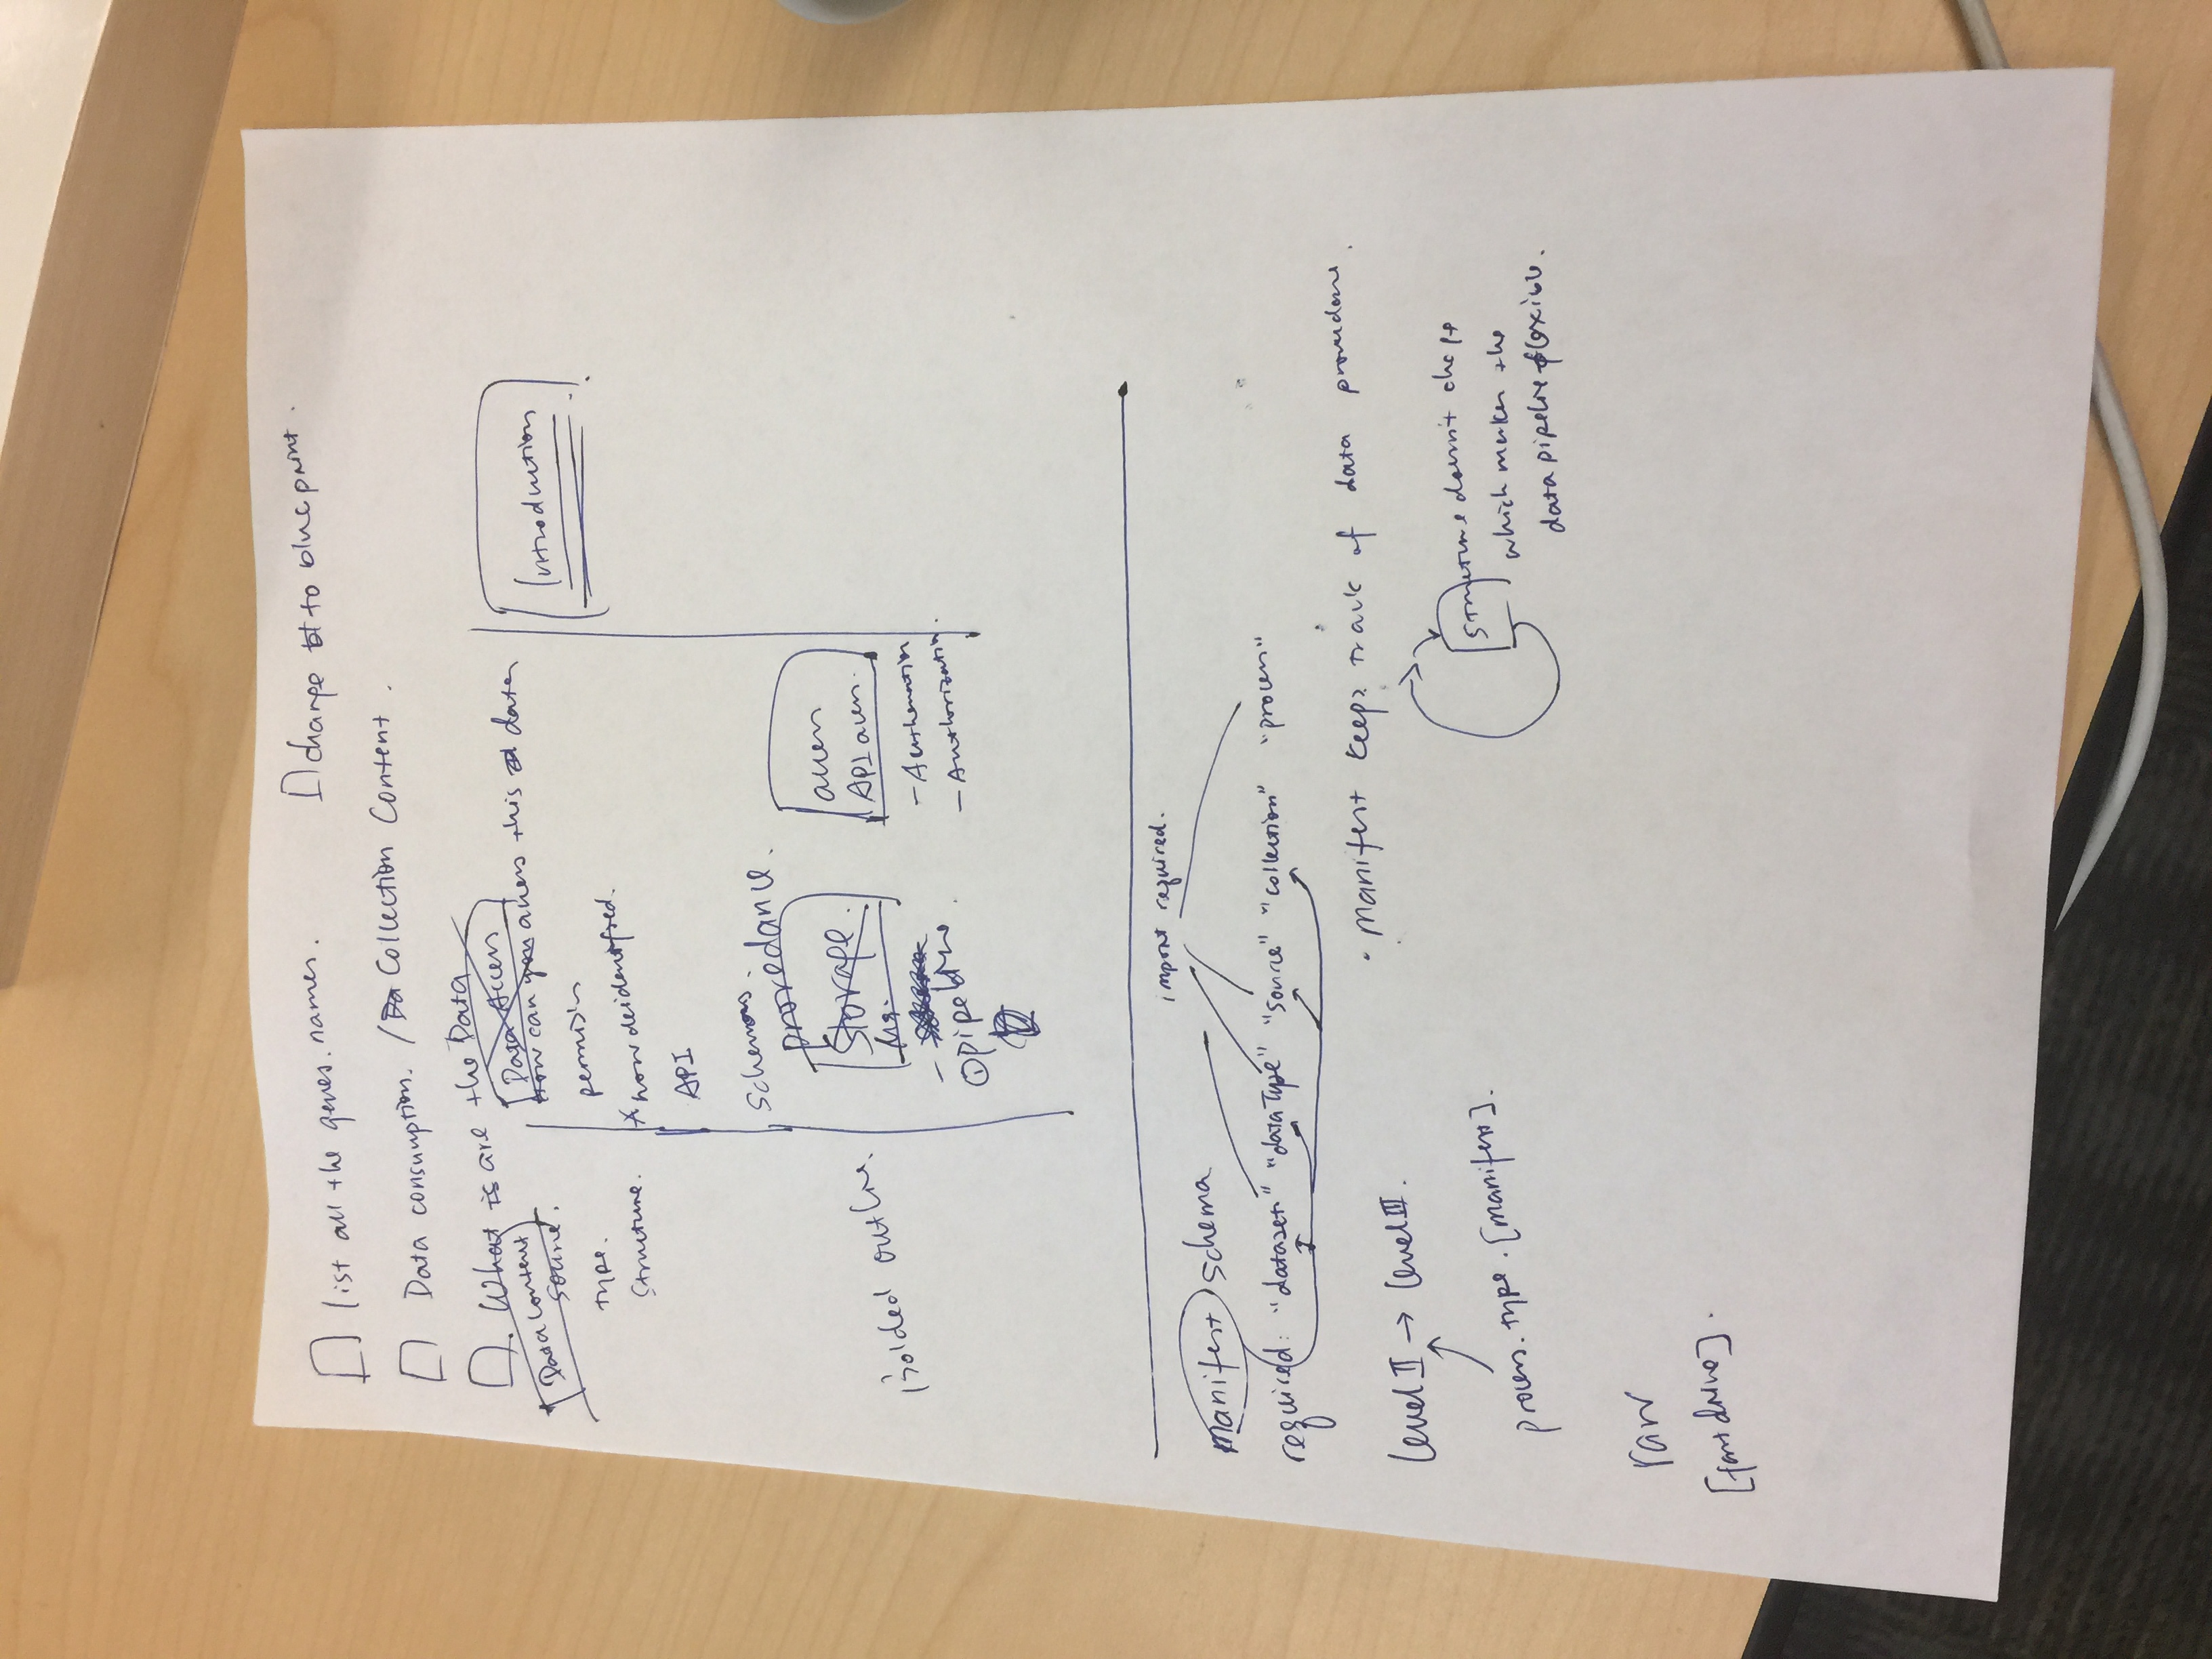 list all the genes. names.
change to blueprint.
Data consumption. / Collection Content.
What is are the Data
Data Content
Source.
type.
Structure.
Data Access
How can you access this data
permissin
* how deidentified.
API
Schemas.
provedance.
Storage.
- 
① pipeline.
access
API access.
- Authenation
- Authorization.
Introduction
Bolded outline.
import required.
manifest schema
required: "datasets" "dataType" "source" "collection" "process"
• manifest keeps track of data provedance.
Level II → Level III.
process. type. [manifest].
structure doesn't change
which makes the
data pipeline flexible.
raw
[fast drive].